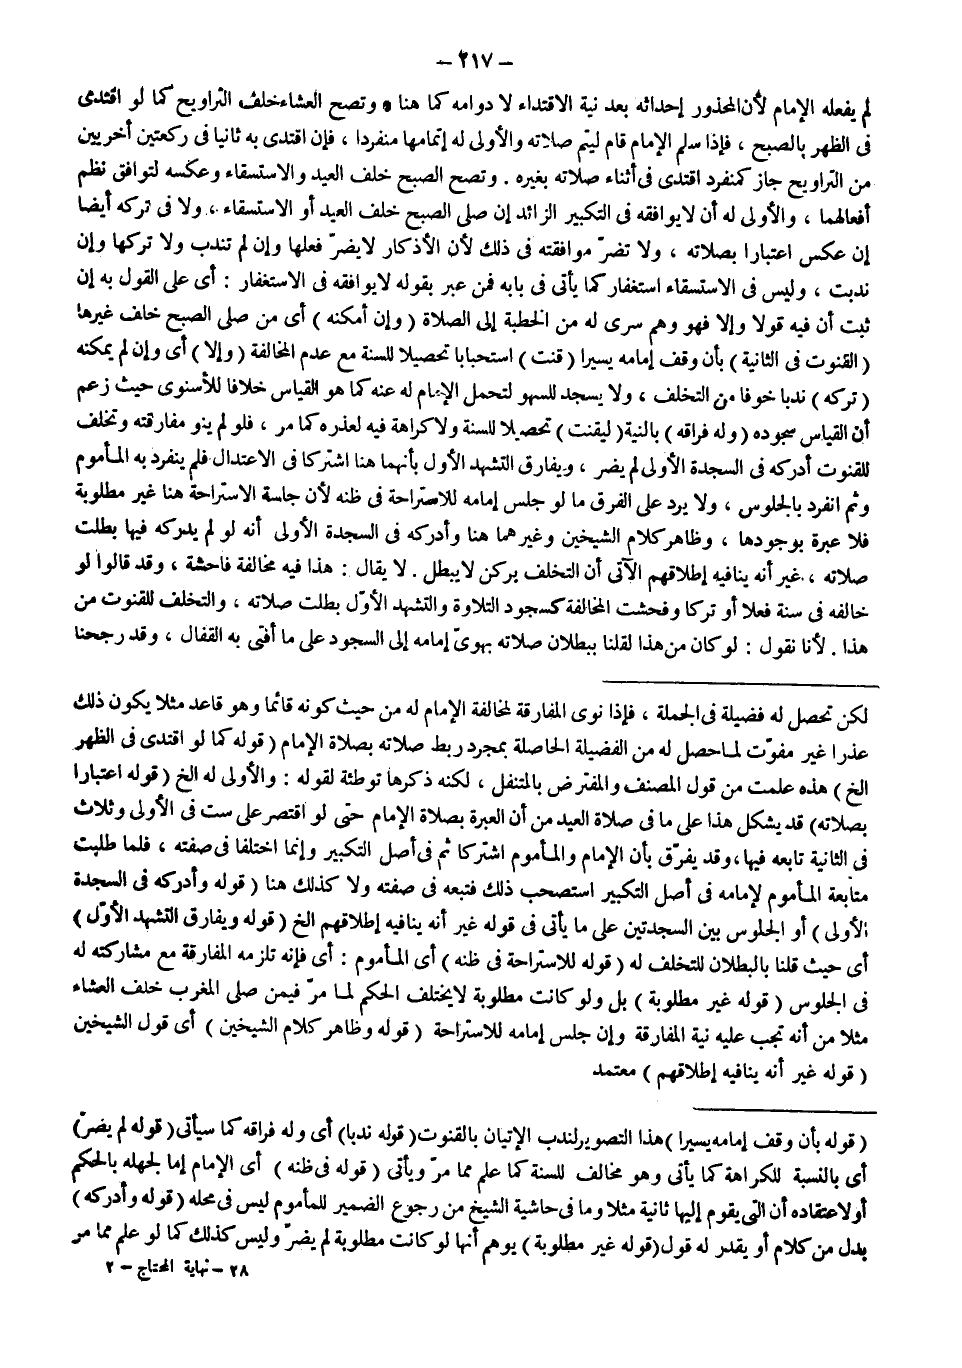 — ٢١٧ —
لم يفعله الإمام لأن المحذور إحداثه بعد نية الاقتداء لا دوامه كما هنا • وتصح العشاء خلف التراويح كما لو اقتدى
فى الظهر بالصبح ، فإذا سلم الإمام قام ليتم صلاته والأولى له إتمامها منفردا ، فإن اقتدى به ثانيا فى ركعتين أخريين
من التراويح جاز كمنفرد اقتدى فى أثناء صلاته بغيره . وتصح الصبح خلف العيد والاستسقاء وعكسه لتوافق نظم
أفعالهما ، والأولى له أن لايوافقه فى التكبير الزائد إن صلى الصبح خلف العيد أو الاستسقاء ، ولا فى تركه أيضا
إن عكس اعتبارا بصلاته ، ولا تضرّ موافقته فى ذلك لأن الأذكار لايضرّ فعلها وإن لم تندب ولا تركها وإن
ندبت ، وليس فى الاستسقاء استغفار كما يأتى فى بابه فمن عبر بقوله لايوافقه فى الاستغفار : أى على القول به إن
ثبت أن فيه قولا وإلا فهو وهم سرى له من الخطبة إلى الصلاة ( وإن أمكنه ) أى من صلى الصبح خلف غيرها
( القنوت فى الثانية ) بأن وقف إمامه يسيرا ( قنت ) استحبابا تحصيلا للسنة مع عدم المخالفة ( وإلا ) أى وإن لم يمكنه
( تركه ) ندبا خوفا من التخلف ، ولا يسجد للسهو لتحمل الإمام له عنه كما هو القياس خلافا للأسنوى حيث زعم
أن القياس سجوده ( وله فراقه ) بالنية ( ليقنت ) تحصيلا للسنة ولا كراهة فيه لعذره كما مر ، فلو لم ينو مفارقته وتخلف
للقنوت أدركه فى السجدة الأولى لم يضر ، ويفارق التشهد الأول بأنهما هنا اشتركا فى الاعتدال فلم ينفرد به المأموم
وثم انفرد بالجلوس ، ولا يرد على الفرق ما لو جلس إمامه للاستراحة فى ظنه لأن جلسة الاستراحة هنا غير مطلوبة
فلا عبرة بوجودها ، وظاهر كلام الشيخين وغيرهما هنا وأدركه فى السجدة الأولى أنه لو لم يدركه فيها بطلت
صلاته ، غير أنه ينافيه إطلاقهم الآتى أن التخلف بركن لايبطل . لا يقال : هذا فيه مخالفة فاحشة ، وقد قالوا لو
خالفه فى سنة فعلا أو تركا وفحشت المخالفة كسجود التلاوة والتشهد الأوّل بطلت صلاته ، والتخلف للقنوت من
هذا . لأنا نقول : لو كان من هذا لقلنا ببطلان صلاته بهوىّ إمامه إلى السجود على ما أفتى به القفال ، وقد رجحنا
لكن تحصل له فضيلة فى الجملة ، فإذا نوى المفارقة لمخالفة الإمام له من حيث كونه قائما وهو قاعد مثلا يكون ذلك
عذرا غير مفوّت لما حصل له من الفضيلة الحاصلة بمجرد ربط صلاته بصلاة الإمام ( قوله كما لو اقتدى فى الظهر
الخ ) هذه علمت من قول المصنف والمفترض بالمتنفل ، لكنه ذكرها توطئة لقوله : والأولى له الخ ( قوله اعتبارا
بصلاته ) قد يشكل هذا على ما فى صلاة العيد من أن العبرة بصلاة الإمام حتى لو اقتصر على ست فى الأولى وثلاث
فى الثانية تابعه فيها ، وقد يفرّق بأن الإمام والمأموم اشتركا ثم فى أصل التكبير وإنما اختلفا فى صفته ، فلما طلبت
متابعة المأموم لإمامه فى أصل التكبير استصحب ذلك فتبعه فى صفته ولا كذلك هنا ( قوله وأدركه فى السجدة
الأولى ) أو الجلوس بين السجدتين على ما يأتى فى قوله غير أنه ينافيه إطلاقهم الخ ( قوله ويفارق التشهد الأوّل )
أى حيث قلنا بالبطلان للتخلف له ( قوله للاستراحة فى ظنه ) أى المأموم : أى فإنه تلزمه المفارقة مع مشاركته له
فى الجلوس ( قوله غير مطلوبة ) بل ولو كانت مطلوبة لايختلف الحكم لما مرّ فيمن صلى المغرب خلف العشاء
مثلا من أنه تجب عليه نية المفارقة وإن جلس إمامه للاستراحة ( قوله وظاهر كلام الشيخين ) أى قول الشيخين
( قوله غير أنه ينافيه إطلاقهم ) معتمد
( قوله بأن وقف إمامه يسيرا ) هذا التصوير لندب الإتيان بالقنوت ( قوله ندبا ) أى وله فراقه كما سيأتى ( قوله لم يضرّ )
أى بالنسبة للكراهة كما يأتى وهو مخالف للسنة كما علم مما مرّ ويأتى ( قوله فى ظنه ) أى الإمام إما لجهله بالحكم
أو لاعتقاده أن التى يقوم إليها ثانية مثلا وما فى حاشية الشيخ من رجوع الضمير للمأموم ليس فى محله ( قوله وأدركه )
بدل من كلام أو يقدر له قول ( قوله غير مطلوبة ) يوهم أنها لو كانت مطلوبة لم يضرّ وليس كذلك كما لو علم مما مر
٢٨ – نهاية المحتاج – ٢